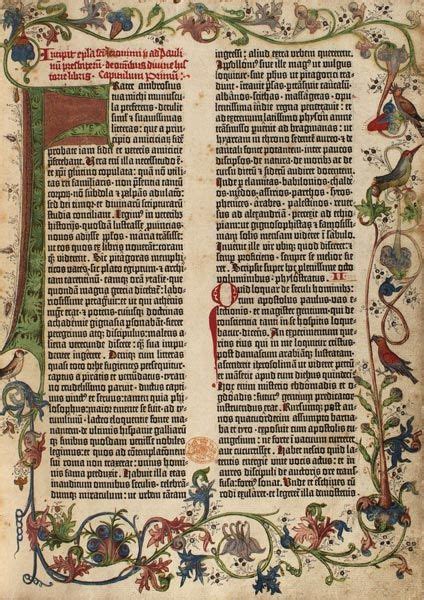 Incipit ep̄la sc̄i ieronimi ad Pauli-
num presbiterū de omnibus divine his-
torie libris. Capitulum Primū.
Frater ambrosius
tua michi munuscu-
la preferens · detulit
simul et suavissimas
litteras: que a prin-
cipio amiciciar̄
probate iam fidei et veteris amicicie
Vera eni illa necessitudo ē ·
et xp̄i glutino copulata: quā nō uti-
litas rei familiaris · nō p̄sentia tantū
corporū · nō subdola ⁊ palpās adulatō ·
sed dei timor et divinarū scripturarū
studia conciliant. Legimꝰ in veterib;
historijs · quosdā lustrasse ,puincias ·
novos adijsse pp̄los · maria trāsisse:
ut eos quos ex libris noverant: corā
q̄q; viderēt. Sic pitagoras memphi-
ticos vates · sic plato egiptum ⁊ archi-
tam tarentinū · eamq; orā ytalie · que
quondā magna grecia dicebat̄: labo-
riosissime peragravit: et ut qui athenis
mgr̄ erat ⁊ potens · cuiusq; doctrinas
achademie gignasia psonabāt · fieret
peregrinus atq; discipulus: malens a-
liena verecunde discere: q̄ sua impu-
denter ingerere. Deniq; cum litteras
quasi toto orbe fugientes persequit̄:
captus a piratis et venūdatus · tyran-
no crudelissimo paruit · ductus capti-
vus vinctꝰ et servus: tamen quia phi-
losophus · maior emente se fuit. ad ty-
tumlivū · lacteo eloquentie fonte ma-
nantem · de ultimis hispanie galliarū-
q; finibus quosdam venisse nobiles
legimus: et quos ad cōtemplatōnem
sui roma nō traxerat: unius hominis
fama perduxit. Habuit illa etas
inauditum omnibus seculis · celebrā-
dumq; miraculum: ut urbem tātam
ingressi: aliud extra urbem quererent.
Appollonius sive ille magꝰ ut vulgus
loquitur · sive ph̄us ut pitagorici tra-
dunt: intravit p̄sas · pertrāsivit caucasū ·
albanos · scithas · massagetas · opu-
lentissima indie regna penetravit: et
ad extremum latissimo physon amne
trāsmisso puenit ad bragmanas: ut
hyarcam in throno sedentē aureo · ⁊ de
tantali fonte potantem · inter paucos
discipulos · de natura · de moribꝰ ac de
cursu dierū ⁊ siderū audiret docentem.
Inde p̄ elamitas · babilonios · chalde-
os · medos · assirios · parthos · syros ·
phenices · arabes · palestinos · reversꝰ
ad alexandriā: perrexit ad ethio-
piam: ut gignosophistas ⁊ famosissi-
mam solis mensam videret ī sabulo.
Invenit ille vir ubiq; quod disceret: et
semp proficiens · semper se melior fie-
ret. Scripsit super hoc plenissime octo
voluminibus · phylostratus. II
Quid loquar de seculi hominibꝰ:
cum apostolus paulus · vas e-
lectionis · et magister gentium · qui de
conscientia tanti in se hospitis loque-
batur · dicens. An experimentum queritis
eius qui in me loquitur cristus:
post damascum arabiāq; lustratam:
ascenderit iherosolimā · ut videret petrū
et manserit apud eum diebus quindecim.
Hoc enim misterio ebdomadis et o-
gdoadis: futurꝰ gentium predicator
instruendus erat. Rursumq; post ānos
quatuordecim assumpto barna-
ba et tyto · exposuerit cum apostolis e-
vangelium: ne forte ī vacuum curreret
aut cucurrisset. Habet nescio quid la-
tentis energie vive vocis actus: et in
aures discipuli de auctoris ore trans-
fusa: fortiꝰ sonat. Unde et eschines cū
rodi exularet · et legeret̄ illa demostenis